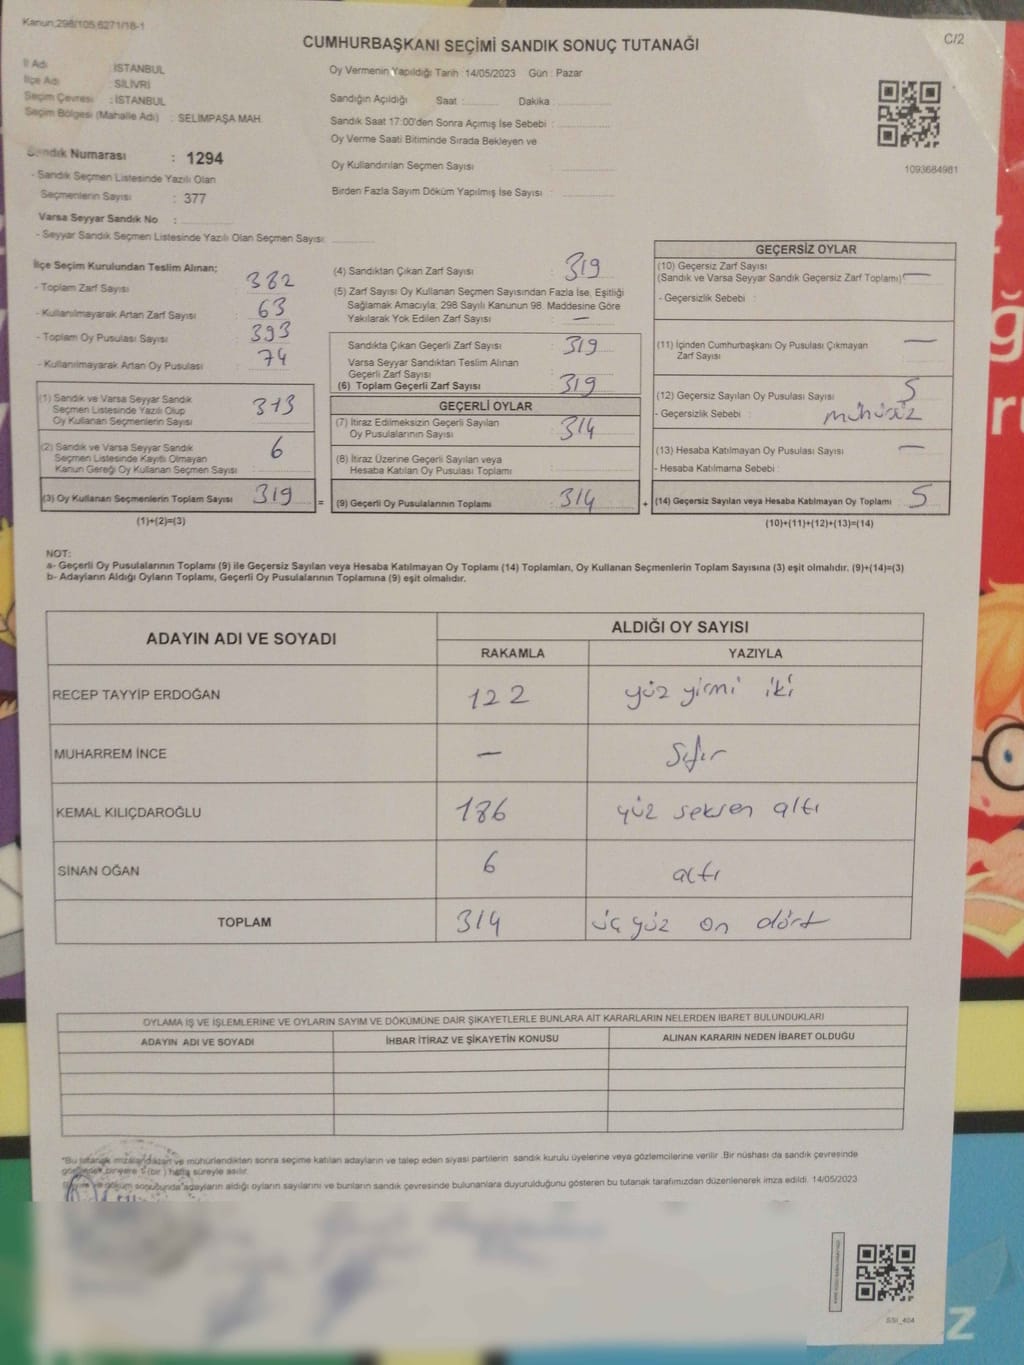 Kanun:298/105,6271/18-1
C/2
CUMHURBAŞKANI SEÇİMİ SANDIK SONUÇ TUTANAĞI
İl Adı : İSTANBUL
İlçe Adı : SİLİVRİ
Seçim Çevresi : İSTANBUL
Seçim Bölgesi (Mahalle Adı) : SELİMPAŞA MAH.
Sandık Numarası : 1294
- Sandık Seçmen Listesinde Yazılı Olan
Seçmenlerin Sayısı : 377
Varsa Seyyar Sandık No :
- Seyyar Sandık Seçmen Listesinde Yazılı Olan Seçmen Sayısı:
Oy Vermenin Yapıldığı Tarih :14/05/2023 Gün : Pazar
Sandığın Açıldığı Saat : Dakika
Sandık Saat 17:00'den Sonra Açımış İse Sebebi :
Oy Verme Saati Bitiminde Sırada Bekleyen ve
Oy Kullandırılan Seçmen Sayısı :
Birden Fazla Sayım Döküm Yapılmış İse Sayısı :
1093684981
İlçe Seçim Kurulundan Teslim Alınan;
- Toplam Zarf Sayısı : 382
- Kullanılmayarak Artan Zarf Sayısı : 63
- Toplam Oy Pusulası Sayısı : 393
- Kullanılmayarak Artan Oy Pusulası : 74
(1) Sandık ve Varsa Seyyar Sandık
Seçmen Listesinde Yazılı Olup
Oy Kullanan Seçmenlerin Sayısı : 313
(2) Sandık ve Varsa Seyyar Sandık
Seçmen Listesinde Kayıtlı Olmayan
Kanun Gereği Oy Kullanan Seçmen Sayısı : 6
(3) Oy Kullanan Seçmenlerin Toplam Sayısı : 319 =
(1)+(2)=(3)
(4) Sandıktan Çıkan Zarf Sayısı : 319
(5) Zarf Sayısı Oy Kullanan Seçmen Sayısından Fazla İse, Eşitliği
Sağlamak Amacıyla; 298 Sayılı Kanunun 98. Maddesine Göre
Yakılarak Yok Edilen Zarf Sayısı : —
Sandıkta Çıkan Geçerli Zarf Sayısı : 319
Varsa Seyyar Sandıktan Teslim Alınan
Geçerli Zarf Sayısı :
(6) Toplam Geçerli Zarf Sayısı : 319
GEÇERLİ OYLAR
(7) İtiraz Edilmeksizin Geçerli Sayılan
Oy Pusulalarının Sayısı : 314
(8) İtiraz Üzerine Geçerli Sayılan veya
Hesaba Katılan Oy Pusulası Toplamı :
(9) Geçerli Oy Pusulalarının Toplamı : 314 +
GEÇERSİZ OYLAR
(10) Geçersiz Zarf Sayısı
(Sandık ve Varsa Seyyar Sandık Geçersiz Zarf Toplamı) : —
- Geçersizlik Sebebi :
(11) İçinden Cumhurbaşkanı Oy Pusulası Çıkmayan
Zarf Sayısı : —
(12) Geçersiz Sayılan Oy Pusulası Sayısı : 5
- Geçersizlik Sebebi : mühürsüz
(13) Hesaba Katılmayan Oy Pusulası Sayısı : —
- Hesaba Katılmama Sebebi :
(14) Geçersiz Sayılan veya Hesaba Katılmayan Oy Toplamı : 5
(10)+(11)+(12)+(13)=(14)
NOT:
a- Geçerli Oy Pusulalarının Toplamı (9) ile Geçersiz Sayılan veya Hesaba Katılmayan Oy Toplamı (14) Toplamları, Oy Kullanan Seçmenlerin Toplam Sayısına (3) eşit olmalıdır. (9)+(14)=(3)
b- Adayların Aldığı Oyların Toplamı, Geçerli Oy Pusulalarının Toplamına (9) eşit olmalıdır.
ADAYIN ADI VE SOYADI ALDIĞI OY SAYISI
RAKAMLA YAZIYLA
RECEP TAYYİP ERDOĞAN 122 yüz yirmi iki
MUHARREM İNCE — Sıfır
KEMAL KILIÇDAROĞLU 186 yüz seksen altı
SİNAN OĞAN 6 altı
TOPLAM 314 üç yüz on dört
OYLAMA İŞ VE İŞLEMLERİNE VE OYLARIN SAYIM VE DÖKÜMÜNE DAİR ŞİKAYETLERLE BUNLARA AİT KARARLARIN NELERDEN İBARET BULUNDUKLARI
ADAYIN ADI VE SOYADI İHBAR İTİRAZ VE ŞİKAYETİN KONUSU ALINAN KARARIN NEDEN İBARET OLDUĞU
*Bu tutanak imzalandıktan ve mühürlendikten sonra seçime katılan adayların ve talep eden siyasi partilerin sandık kurulu üyelerine veya gözlemcilerine verilir .Bir nüshası da sandık çevresinde
görülecek bir yere 1 (bir ) hafta süreyle asılır.
döküm sonucunda adayların aldığı oyların sayılarını ve bunların sandık çevresinde bulunanlara duyurulduğunu gösteren bu tutanak tarafımızdan düzenlenerek imza edildi. 14/05/2023
SSI_404